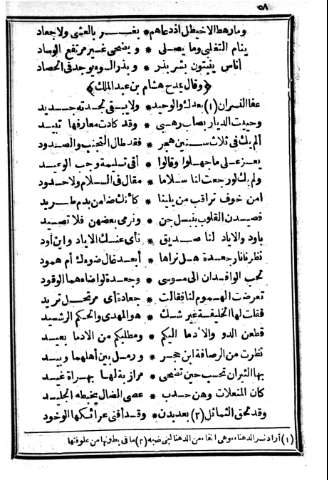 ٥٨
وما رهط الاخيطل اذ دعاهم * بغر بالعشى ولا جعاد
ينام التغلبى وما يصلى * ويضحى غير مرتفع الوساد
أناس ينبتون بشر بذر * وبذر السوء يوجد فى الحصاد
﴿وقال يمدح هشام بن عبد الملك﴾
عفا النسران (١) بعدك والوحيد * ولا يبقى لجدته جديد
وحييت الديار بصلب رهبى * وقد كادت معارفها تبيد
ألم يك فى ثلاث سنين هجر * فقد طال التجنب والصدود
يعز على ما جهلوا وقالوا * أفى تسليمة وجب الوعيد
ولم يك لو رجعت لنا سلاما * مقال فى السلام ولا حدود
أمن خوف تراقب من يلينا * كأنك ضامن بدم طريد
فصيدن القلوب بنبل جن * ونرمى بعضهن فلا نصيد
باود والاياد لنا صديق * نأى عنك الاياد وأين أود
نظرنا نار جعدة هل نراها * أبعد غال ضوءك أم همود
لحب الوافدان الى موسى * وجعدة لو أضاءهما الوقود
تعرضت الهموم لنا فقالت * جعادة أى مرتحل تريد
فقلت لها الخليفة غير شك * هو المهدى والحكم الرشيد
قطعن الدو والادما اليكم * ومطلبكم من الادما بعيد
نظرت من الرصافة أين حجر * ورمل بين أهلهما وبيد
بها الثيران تحسب حين تضحى * مرازبة لها بهراة عيد
كأن المنعلات وهن حدب * عصى الضال يخبطه الجليد
وقد لحق الثمائل (٢) بعد بدن * وقد أفنى عرائكها الوخود
(١) أراد نسر الدهناء وهى أنقاء من الدهنا لبنى ضبه (٢) ما فى بطونها من علوفتها